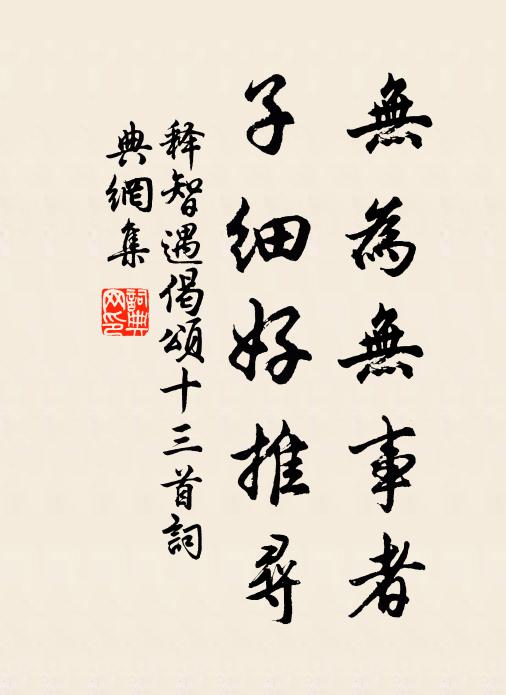 無為無事者
子細好推尋
释智遇偈頌十三首詞
典網集
詞典網印